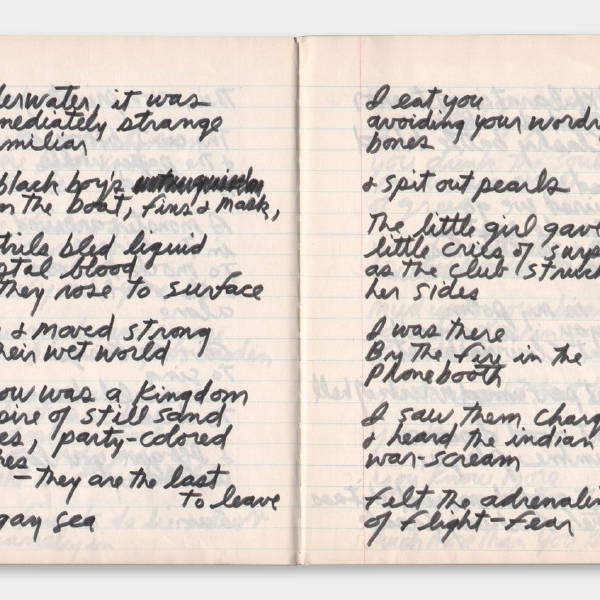 derwater, it was
mediately strange
amiliar
black boy's
the boat, fins & mask,
trils bled liquid
stal blood
they rose to surface
& moved strong
heir wet world
ow was a kingdom
pire of still sand
es, party-colored
hes
– they are the last
to leave
gay sea
I eat you
avoiding your wordy
bones
& spit out pearls
The little girl gave
little cries of surp
as the club struck
her sides
I was there
By the fire in the
Phonebooth
I saw them charg
& heard the indian
war-scream
felt the adrenalin
of flight-fear